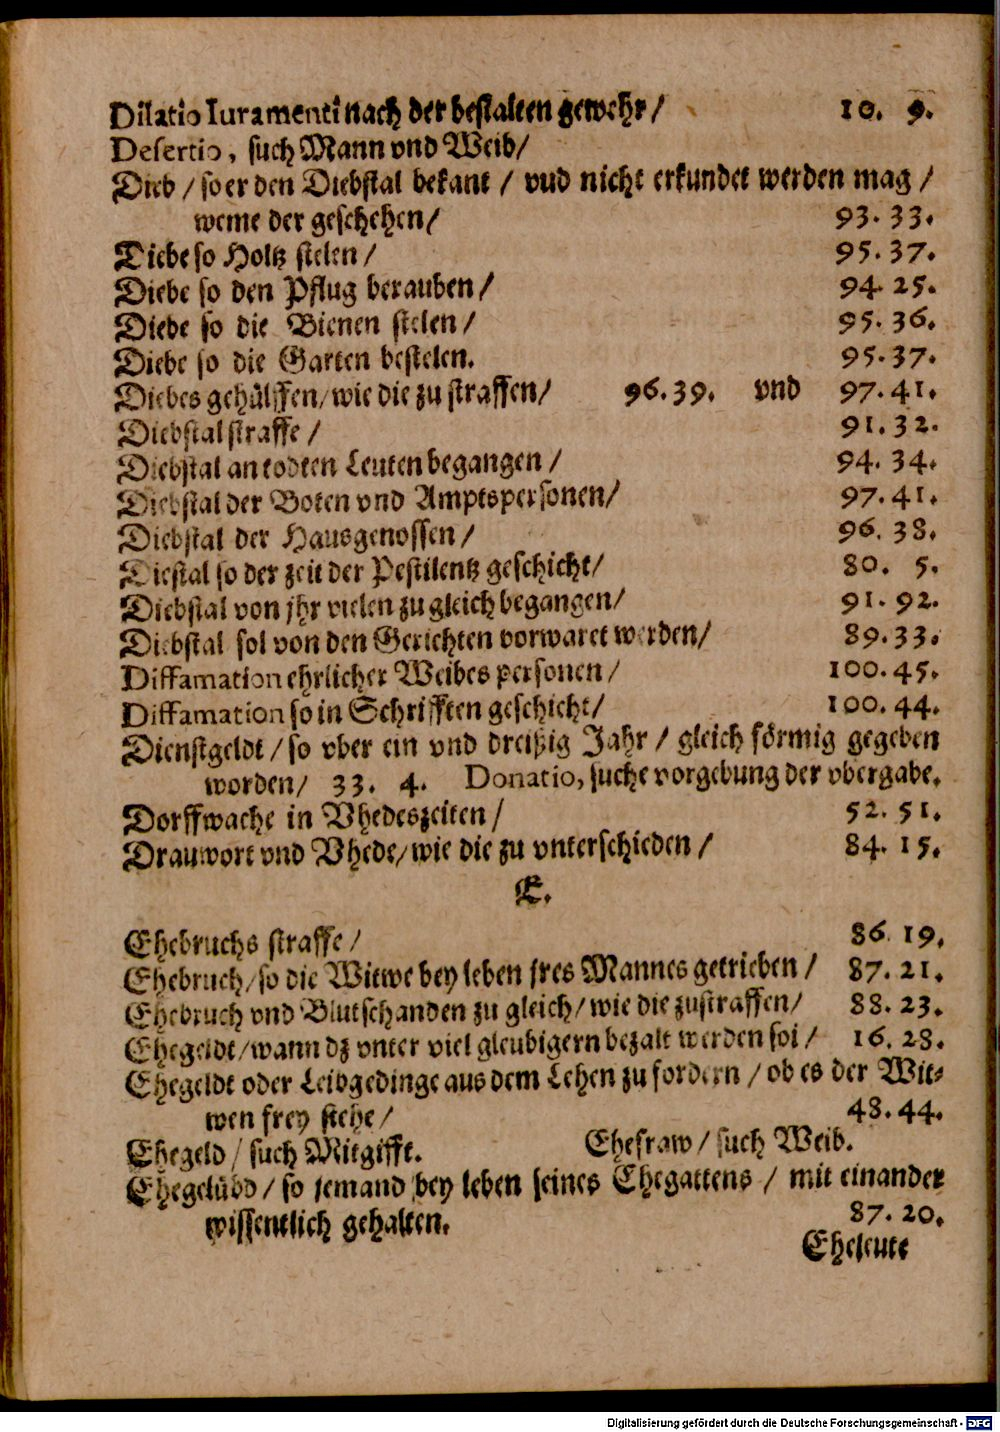 Dilatio Iuramenti nach der bestalten gewehr/ 10. 9.
Desertio, such Mann vnd Weib/
Dieb / so er den Diebstal bekant / vud nicht erkundet werden mag /
weme der geschehen/ 93. 33.
Diebe so Holtz stelen / 95. 37.
Diebe so den Pflug berauben / 94. 25.
Diebe so die Bienen stelen / 95. 36.
Diebe so die Garten bestelen. 95. 37.
Diebes gehülffen/wie die zu straffen/ 96. 39. vnd 97. 41.
Diebstal straffe / 91. 32.
Diebstal an todten Leuten begangen / 94. 34.
Diebstal der Boten vnd Amptspersonen/ 97. 41.
Diebstal der Hausgenossen / 96. 38.
Diestal so der zeit der Pestilentz geschicht/ 80. 5.
Diebstal von jhr vielen zu gleich begangen/ 91. 92.
Diebstal sol von den Gerichten vorwaret werden/ 89. 33.
Diffamation ehrlicher Weibes personen / 100. 45.
Diffamation so in Schrifften geschicht/ 100. 44.
Dienstgeldt / so vber ein vnd dreißig Jahr / gleich förmig gegeben
worden/ 33. 4. Donatio, suche vorgebung der vbergabe.
Dorffwache in Vhedeszeiten / 52. 51.
Drauwort vnd Vhede/wie die zu vnterschieden / 84. 15.
E.
Ehebruchs straffe / 86. 19.
Ehebruch/so die Witwe bey leben jres Mannes getrieben / 87. 21.
Ehebruch vnd Blutschanden zu gleich/wie die zustraffen/ 88. 23.
Ehegeldt/wann dz vnter viel gleubigern bezalt werden sol / 16. 28.
Ehegeldt oder Leibgedinge aus dem Lehen zu fordern / ob es der Wit-
wen frey stehe / 48. 44.
Ehegeld / such Mitgifft. Ehefraw / such Weib.
Ehegelübd / so jemand bey leben seines Ehegattens / mit einander
wissentlich gehalten. 87. 20.
Eheleute
Digitalisierung gefördert durch die Deutsche Forschungsgemeinschaft - DFG